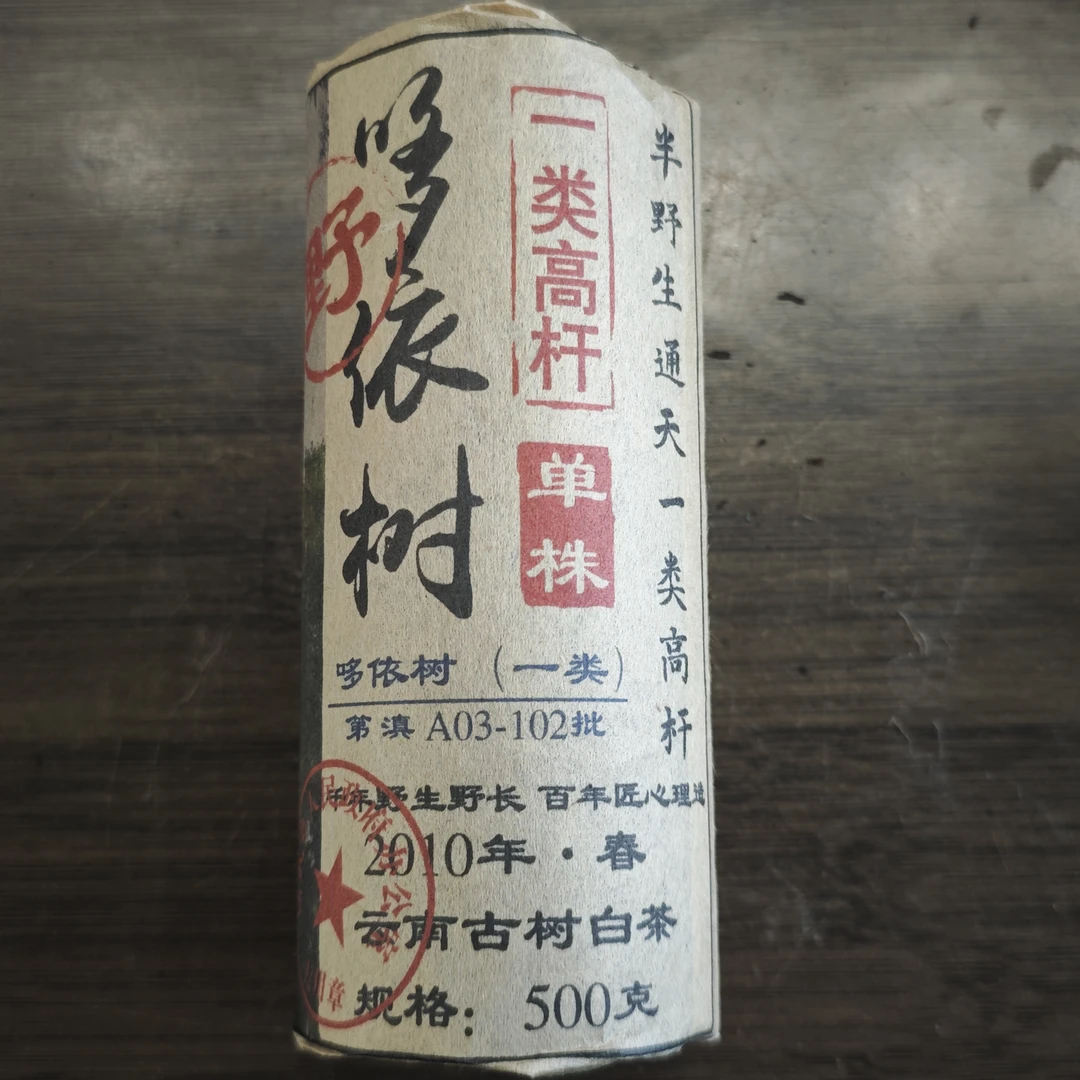 哆依树
野
一类高杆
单株
半野生通天一类高杆
哆依树（一类）
第滇 A03-102批
千年野生野长 百年匠心理
2010年·春
云南古树白茶
规格：500克